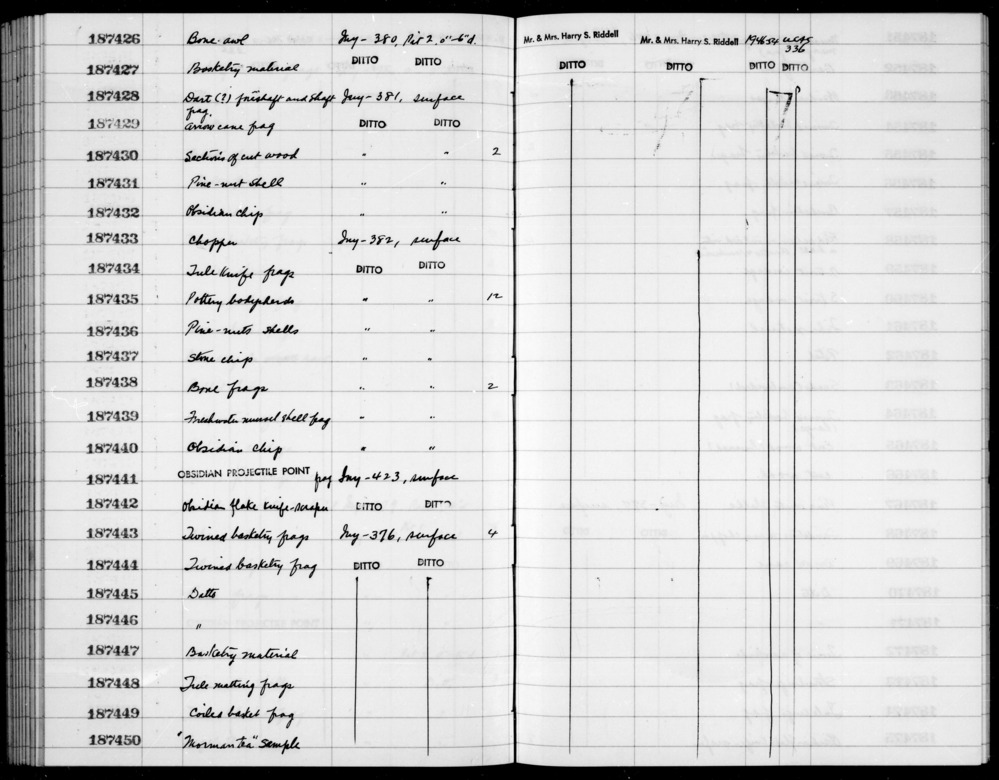 187426 Bone awl Iny-380, Pit 2, 0"-6"d. Mr. & Mrs. Harry S. Riddell Mr. & Mrs. Harry S. Riddell 1946-54 UCAS 336
187427 Basketry material DITTO DITTO DITTO DITTO DITTO DITTO
187428 Dart (?) foreshaft and shaft frag. Iny-381, surface
187429 Arrow cane frag DITTO DITTO
187430 Sections of cut wood " " 2
187431 Pine-nut shell " "
187432 Obsidian chip " "
187433 Chopper Iny-382, surface
187434 Tule Knife frags DITTO DITTO
187435 Pottery bodysherds " " 12
187436 Pine-nuts shells " "
187437 Stone chip " "
187438 Bone frags " " 2
187439 Freshwater mussel shell frag " "
187440 Obsidian chip " "
187441 OBSIDIAN PROJECTILE POINT frag Iny-423, surface
187442 Obsidian flake knife-scraper DITTO DITTO
187443 Twined basketry frags Iny-376, surface 4
187444 Twined basketry frag DITTO DITTO
187445 Ditto
187446 "
187447 Basketry material
187448 Tule matting frags
187449 Coiled basket frag
187450 "Mormon tea" sample